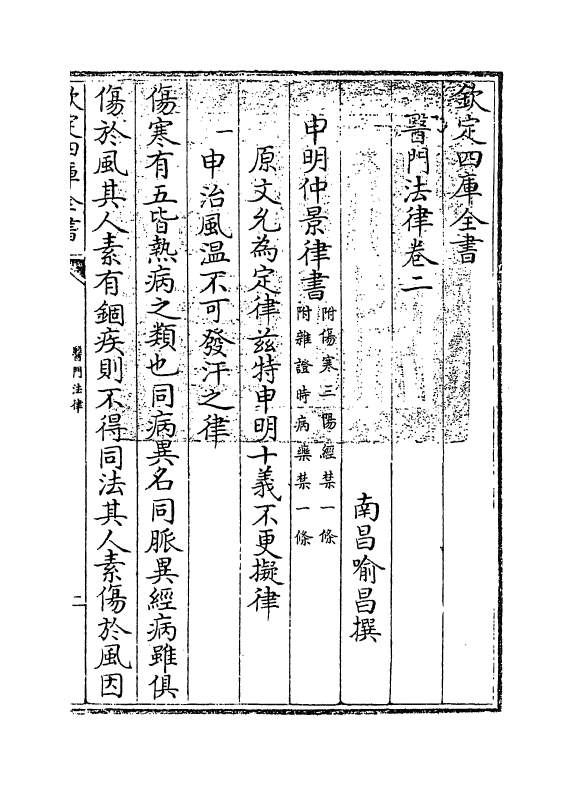 欽定四庫全書
醫門法律卷二
南昌喻昌撰
申明仲景律書附傷寒三陽經禁一條
附雜證時病藥禁一條
原文允為定律茲特申明十義不更擬律
一申治風温不可發汗之律
傷寒有五皆熱病之類也同病異名同脈異經病雖俱
傷於風其人素有錮疾則不得同法其人素傷於風因
欽定四庫全書
醫門法律
二